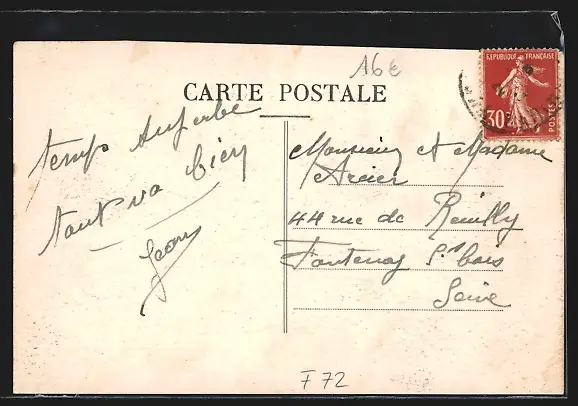 16€
CARTE POSTALE
REPUBLIQUE FRANÇAISE
30c
POSTES
temps superbe
tout va bien
Jean
Monsieur et Madame
Arcier
44 rue de Reuilly
Fontenay s/s bois
Seine
F 72